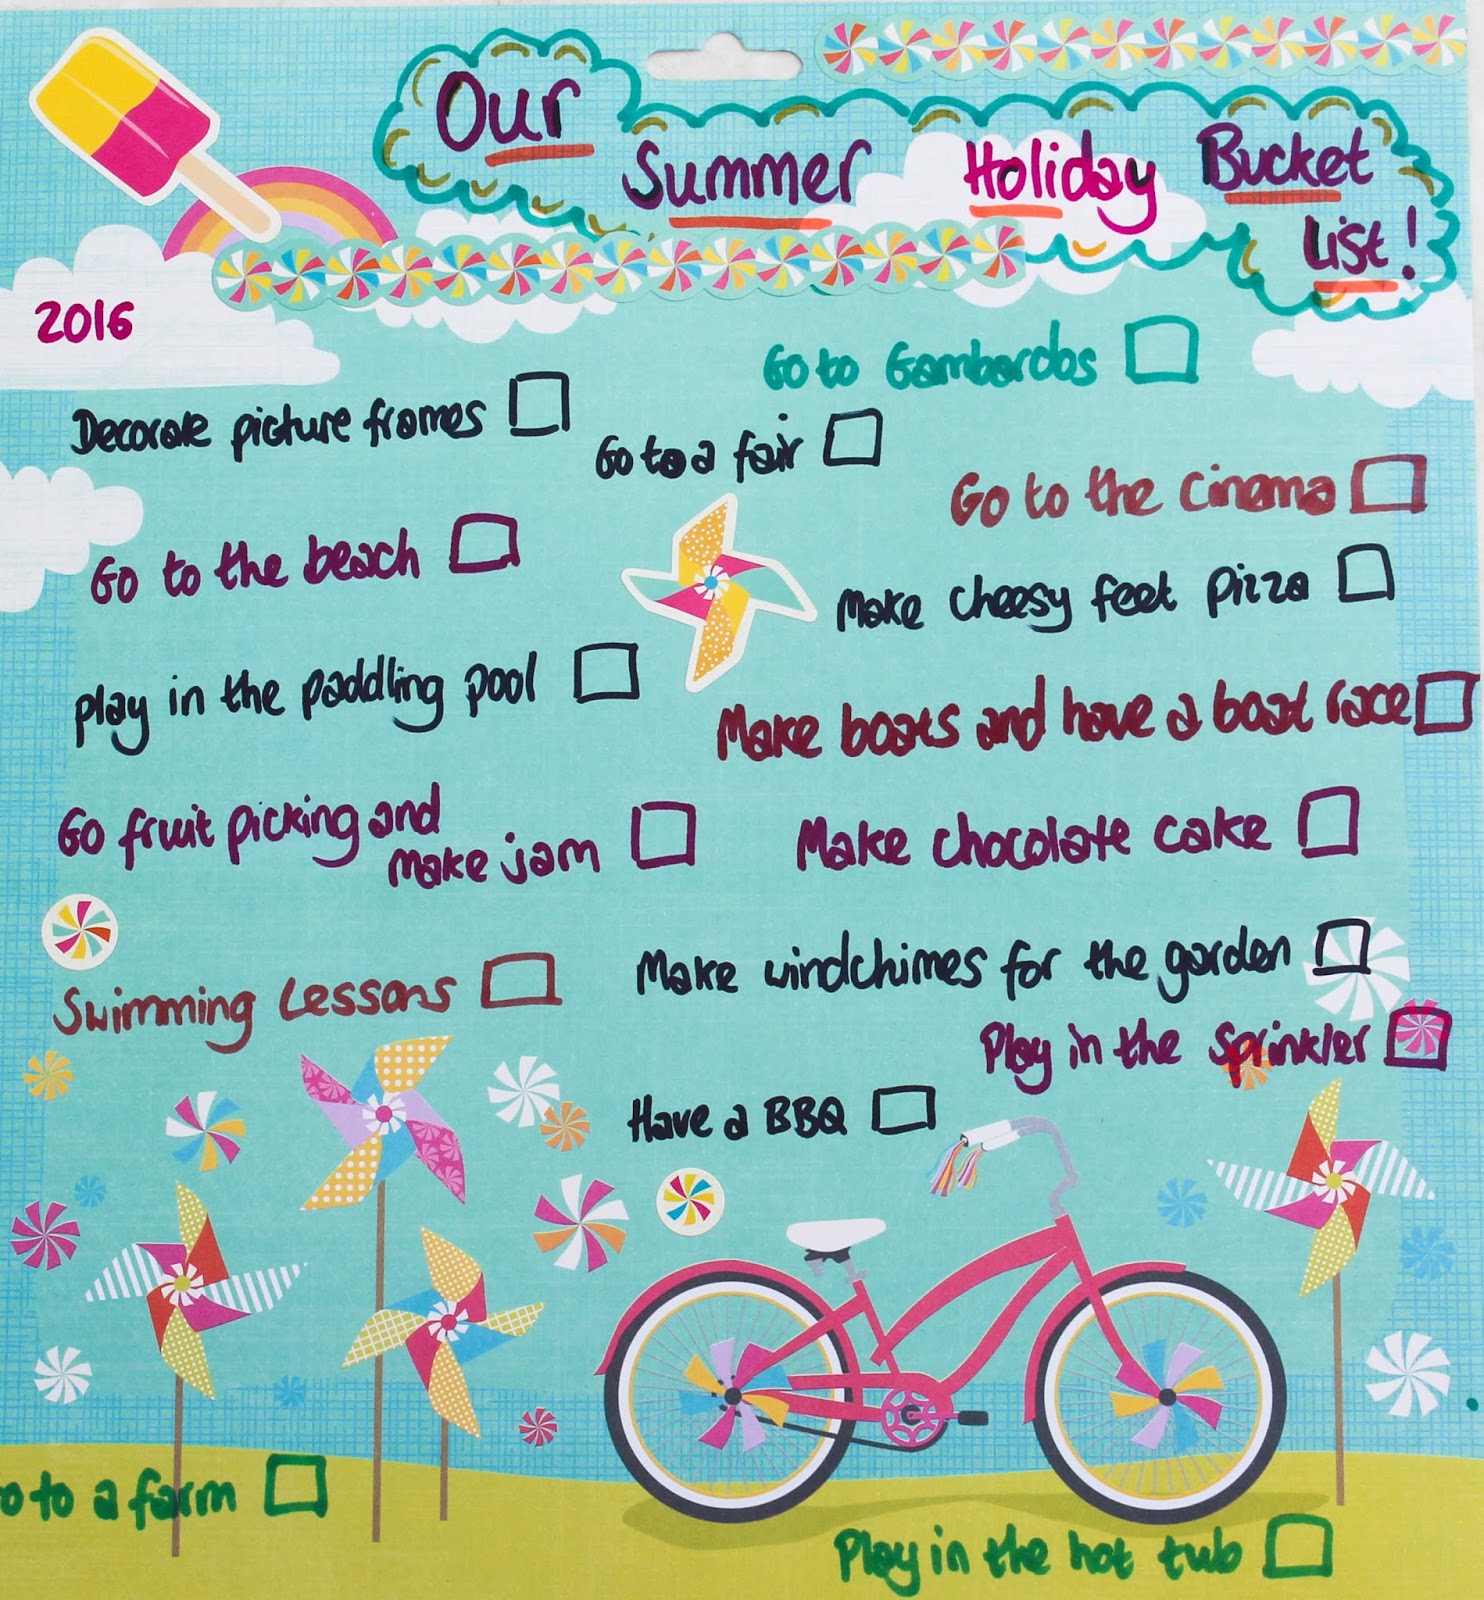 Our
Summer Holiday Bucket
List!
2016
Go to Gambarobs
Decorate picture frames
Go to a fair
Go to the cinema
Go to the beach
Make cheesy feet pizza
play in the paddling pool
Make boats and have a boat race
Go fruit picking and
make jam
Make chocolate cake
Swimming Lessons
Make windchimes for the garden
Play in the sprinkler
Have a BBQ
o to a farm
Play in the hot tub